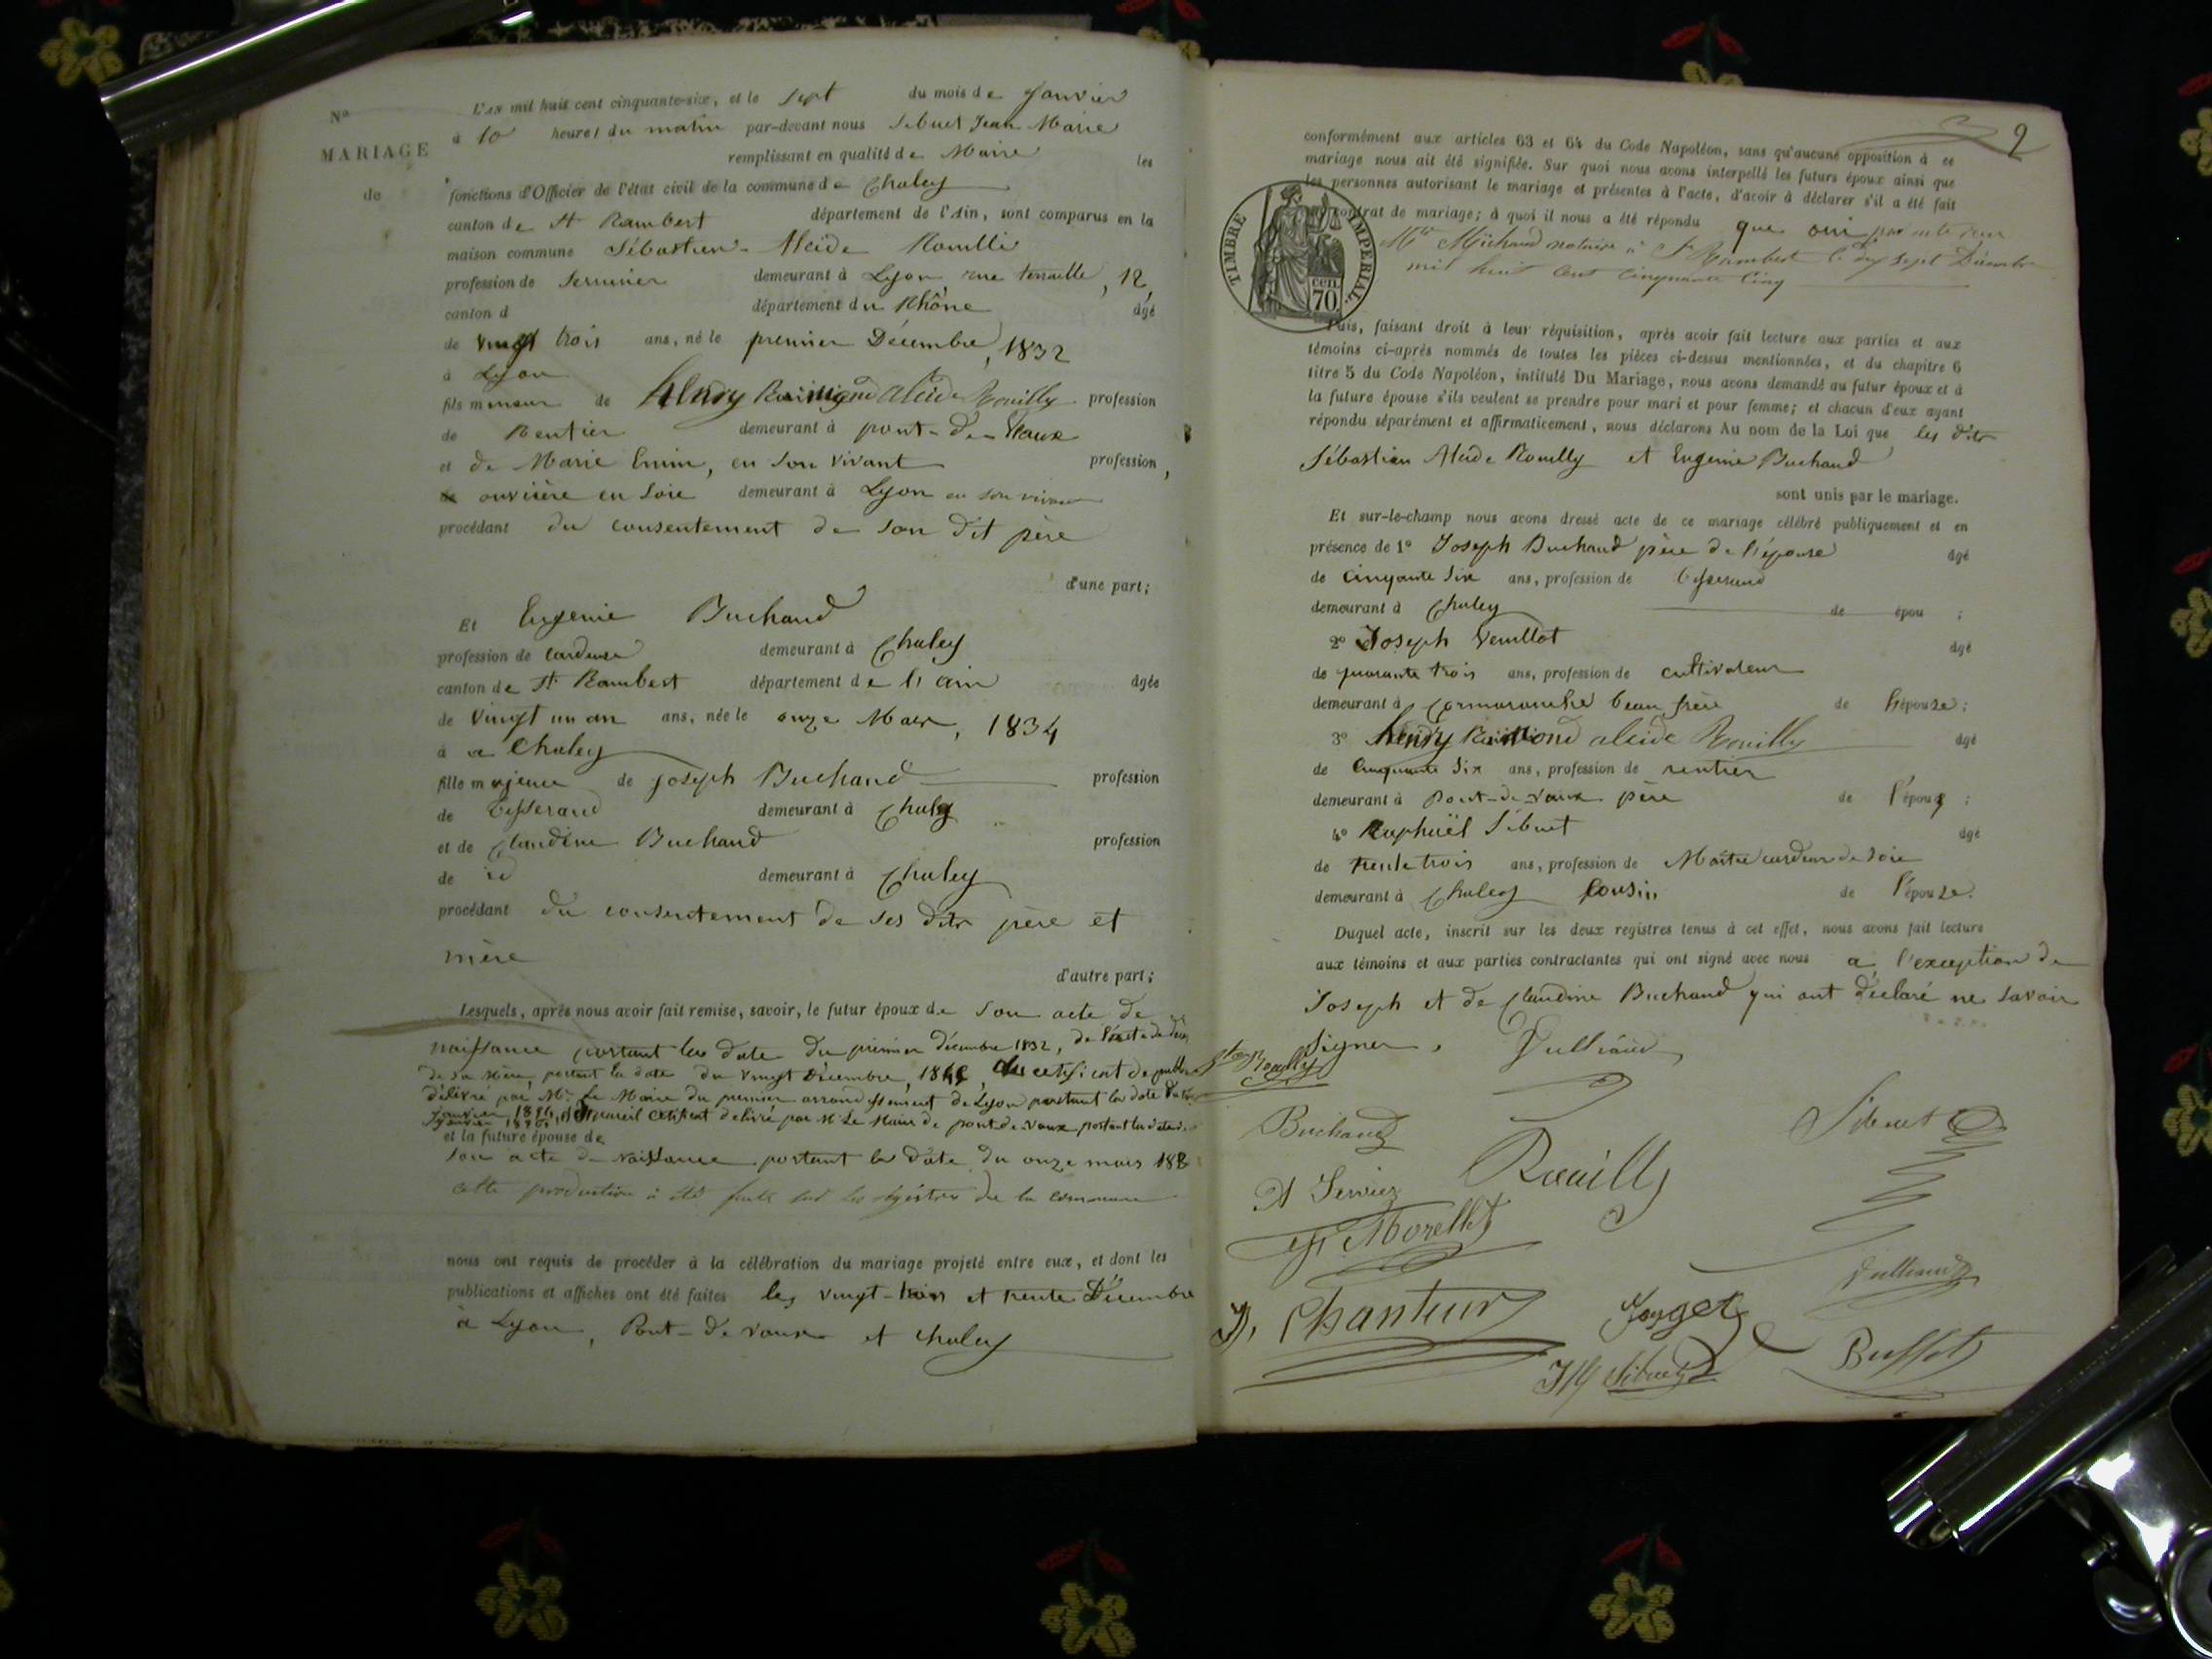 No
MARIAGE
de
L'an mil huit cent cinquante-six, et le sept du mois de Janvier
à 10 heures du matin par-devant nous Sibuet Jean Marie
remplissant en qualité de Maire les
fonctions d'Officier de l'état civil de la commune de Chaley
canton de St Rambert département de l'Ain, sont comparus en la
maison commune Sébastien-Alcide Rouilli
profession de Serrurier demeurant à Lyon, rue terraille, 12,
canton d département du Rhône âgé
de vingt trois ans, né le premier Décembre, 1832
à Lyon
fils mineur de henry Alcide Rouilly profession
de Rentier demeurant à pont-de-Vaux
et de Marie en son vivant profession,
ouvrière en soie demeurant à Lyon en son vivant
procédant du consentement de son dit père
d'une part;
Et Eugenie Buchand
profession de cardeuse demeurant à Chaley
canton de St Rambert département de l'ain âgée
de vingt un an ans, née le onze Mars, 1834
à a Chaley
fille majeure de Joseph Buchand profession
de tisserand demeurant à Chaley
et de Claudine Buchand profession
de id demeurant à Chaley
procédant du consentement de ses dits père et
mère
d'autre part;
Lesquels, après nous avoir fait remise, savoir, le futur époux de son acte de
naissance portant la date du premier décembre 1832, de l'acte de décès
de sa mère, portant la date du vingt Décembre, certificat de
délivré par Mr Le Maire du premier arrondissement de Lyon portant la date
Janvier pareil certificat délivré par Mr Le Maire de pont-de-Vaux portant la date
et la future épouse de
son acte de naissance portant la date du onze mars
cette production a été faite sur les régistres de la commune
nous ont requis de procéder à la célébration du mariage projeté entre eux, et dont les
publications et affiches ont été faites les vingt-trois et trente Décembre
à Lyon, Pont-de-vaux et Chaley
2
conformément aux articles 63 et 64 du Code Napoléon, sans qu'aucune opposition à ce
mariage nous ait été signifiée. Sur quoi nous avons interpellé les futurs époux ainsi que
les personnes autorisant le mariage et présentes à l'acte, d'avoir à déclarer s'il a été fait
contrat de mariage; à quoi il nous a été répondu que oui
Me Michaud notaire à St Rambert le dix sept Décembre
mil huit cent cinquante cinq
TIMBRE IMPERIAL
cen.
70
Puis, faisant droit à leur réquisition, après avoir fait lecture aux parties et aux
témoins ci-après nommés de toutes les pièces ci-dessus mentionnées, et du chapitre 6
titre 5 du Code Napoléon, intitulé Du Mariage, nous avons demandé au futur époux et à
la future épouse s'ils veulent se prendre pour mari et pour femme; et chacun d'eux ayant
répondu séparément et affirmativement, nous déclarons Au nom de la Loi que les dits
Sébastien Alcide Rouilly et Eugenie Buchand
sont unis par le mariage.
Et sur-le-champ nous avons dressé acte de ce mariage célébré publiquement et en
présence de 1o Joseph Buchand père de l'épouse âgé
de cinqante six ans, profession de tisserand
demeurant à Chaley de épou ;
2o Joseph Venillot âgé
de quarante trois ans, profession de cultivateur
demeurant à Cormaranche beau frère de l'épouse;
3o henry alcide Rouilly âgé
de cinquante six ans, profession de rentier
demeurant à Pont-de-vaux père de l'époux;
4o Raphaël Sibuet âgé
de trente trois ans, profession de Maître cardeur de soie
demeurant à Chaley Cousin de l'épouse.
Duquel acte, inscrit sur les deux registres tenus à cet effet, nous avons fait lecture
aux témoins et aux parties contractantes qui ont signé avec nous a l'exception de
Joseph et de Claudine Buchand qui ont déclaré ne savoir
signer.
Rouilly
Buchand
Sibuet
Rouilly
Morellet
D, Chanteur
Jouget
JM Sibuet
Buffet